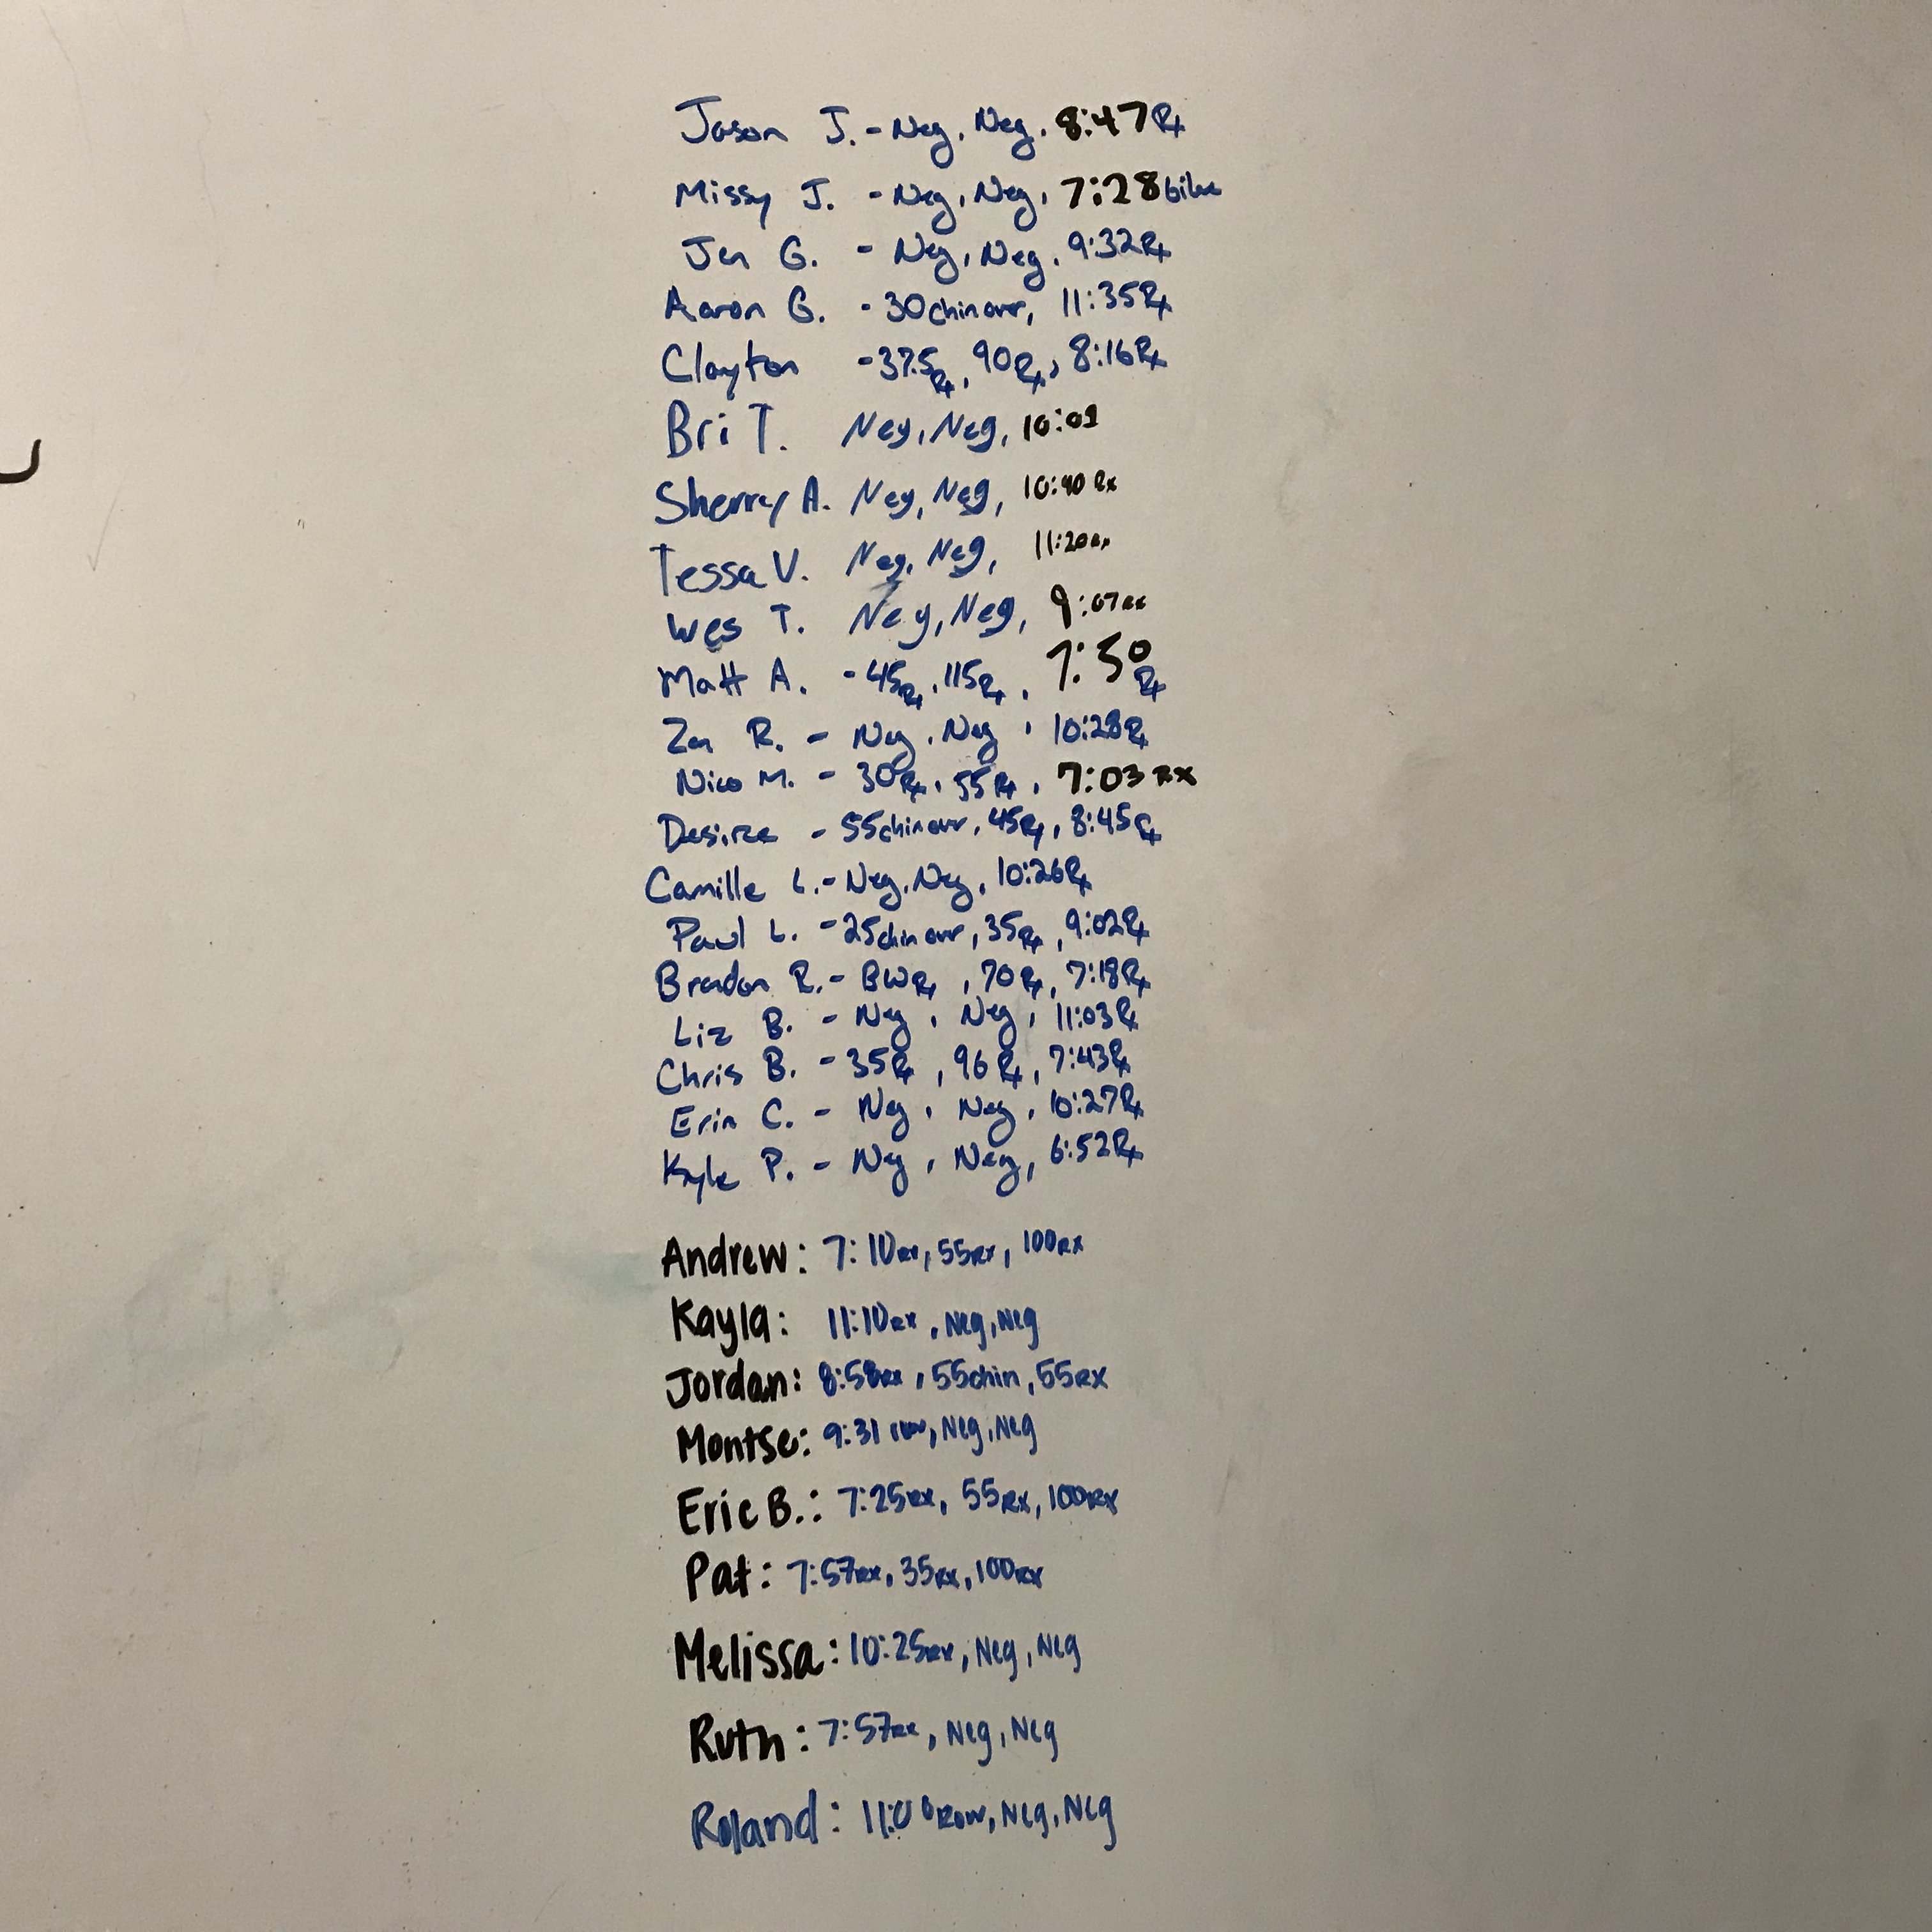 Jason J. - Neg, Neg, 8:47 Rx
Missy J. - Neg, Neg, 7:28 bike
Jen G. - Neg, Neg, 9:32 Rx
Aaron G. - 30 chin over, 11:35 Rx
Clayton - 37.5 Rx, 90 Rx, 8:16 Rx
Bri T. Neg, Neg, 10:09
Sherry A. Neg, Neg, 10:40 Rx
Tessa V. Neg, Neg, 11:20 Rx
Wes T. Neg, Neg, 9:07 Rx
Matt A. - 45 Rx, 115 Rx, 7:50 Rx
R. - Neg, Neg, 10:28 Rx
Nico M. - 30 Rx, 55 Rx, 7:03 Rx
Desiree - 55 chin over, 45 Rx, 8:45 Rx
Camille L. - Neg, Neg, 10:26 Rx
Paul L. - 25 chin over, 35 Rx, 9:02 Rx
Brendon R. - BW Rx, 70 Rx, 7:18 Rx
Liz B. - Neg, Neg, 11:03 Rx
Chris B. - 35 Rx, 96 Rx, 7:43 Rx
Erin C. - Neg, Neg, 10:27 Rx
Kyle P. - Neg, Neg, 6:52 Rx
Andrew: 7:10 Rx, 55 Rx, 100 Rx
Kayla: 11:10 Rx, Neg, Neg
Jordan: 8:58 Rx, 55 chin, 55 Rx
Montse: 9:31 row, Neg, Neg
Eric B.: 7:25 Rx, 55 Rx, 100 Rx
Pat: 7:57 Rx, 35 Rx, 100 Rx
Melissa: 10:25 Rx, Neg, Neg
Ruth: 7:57 Rx, Neg, Neg
Roland: 11:00 Row, Neg, Neg